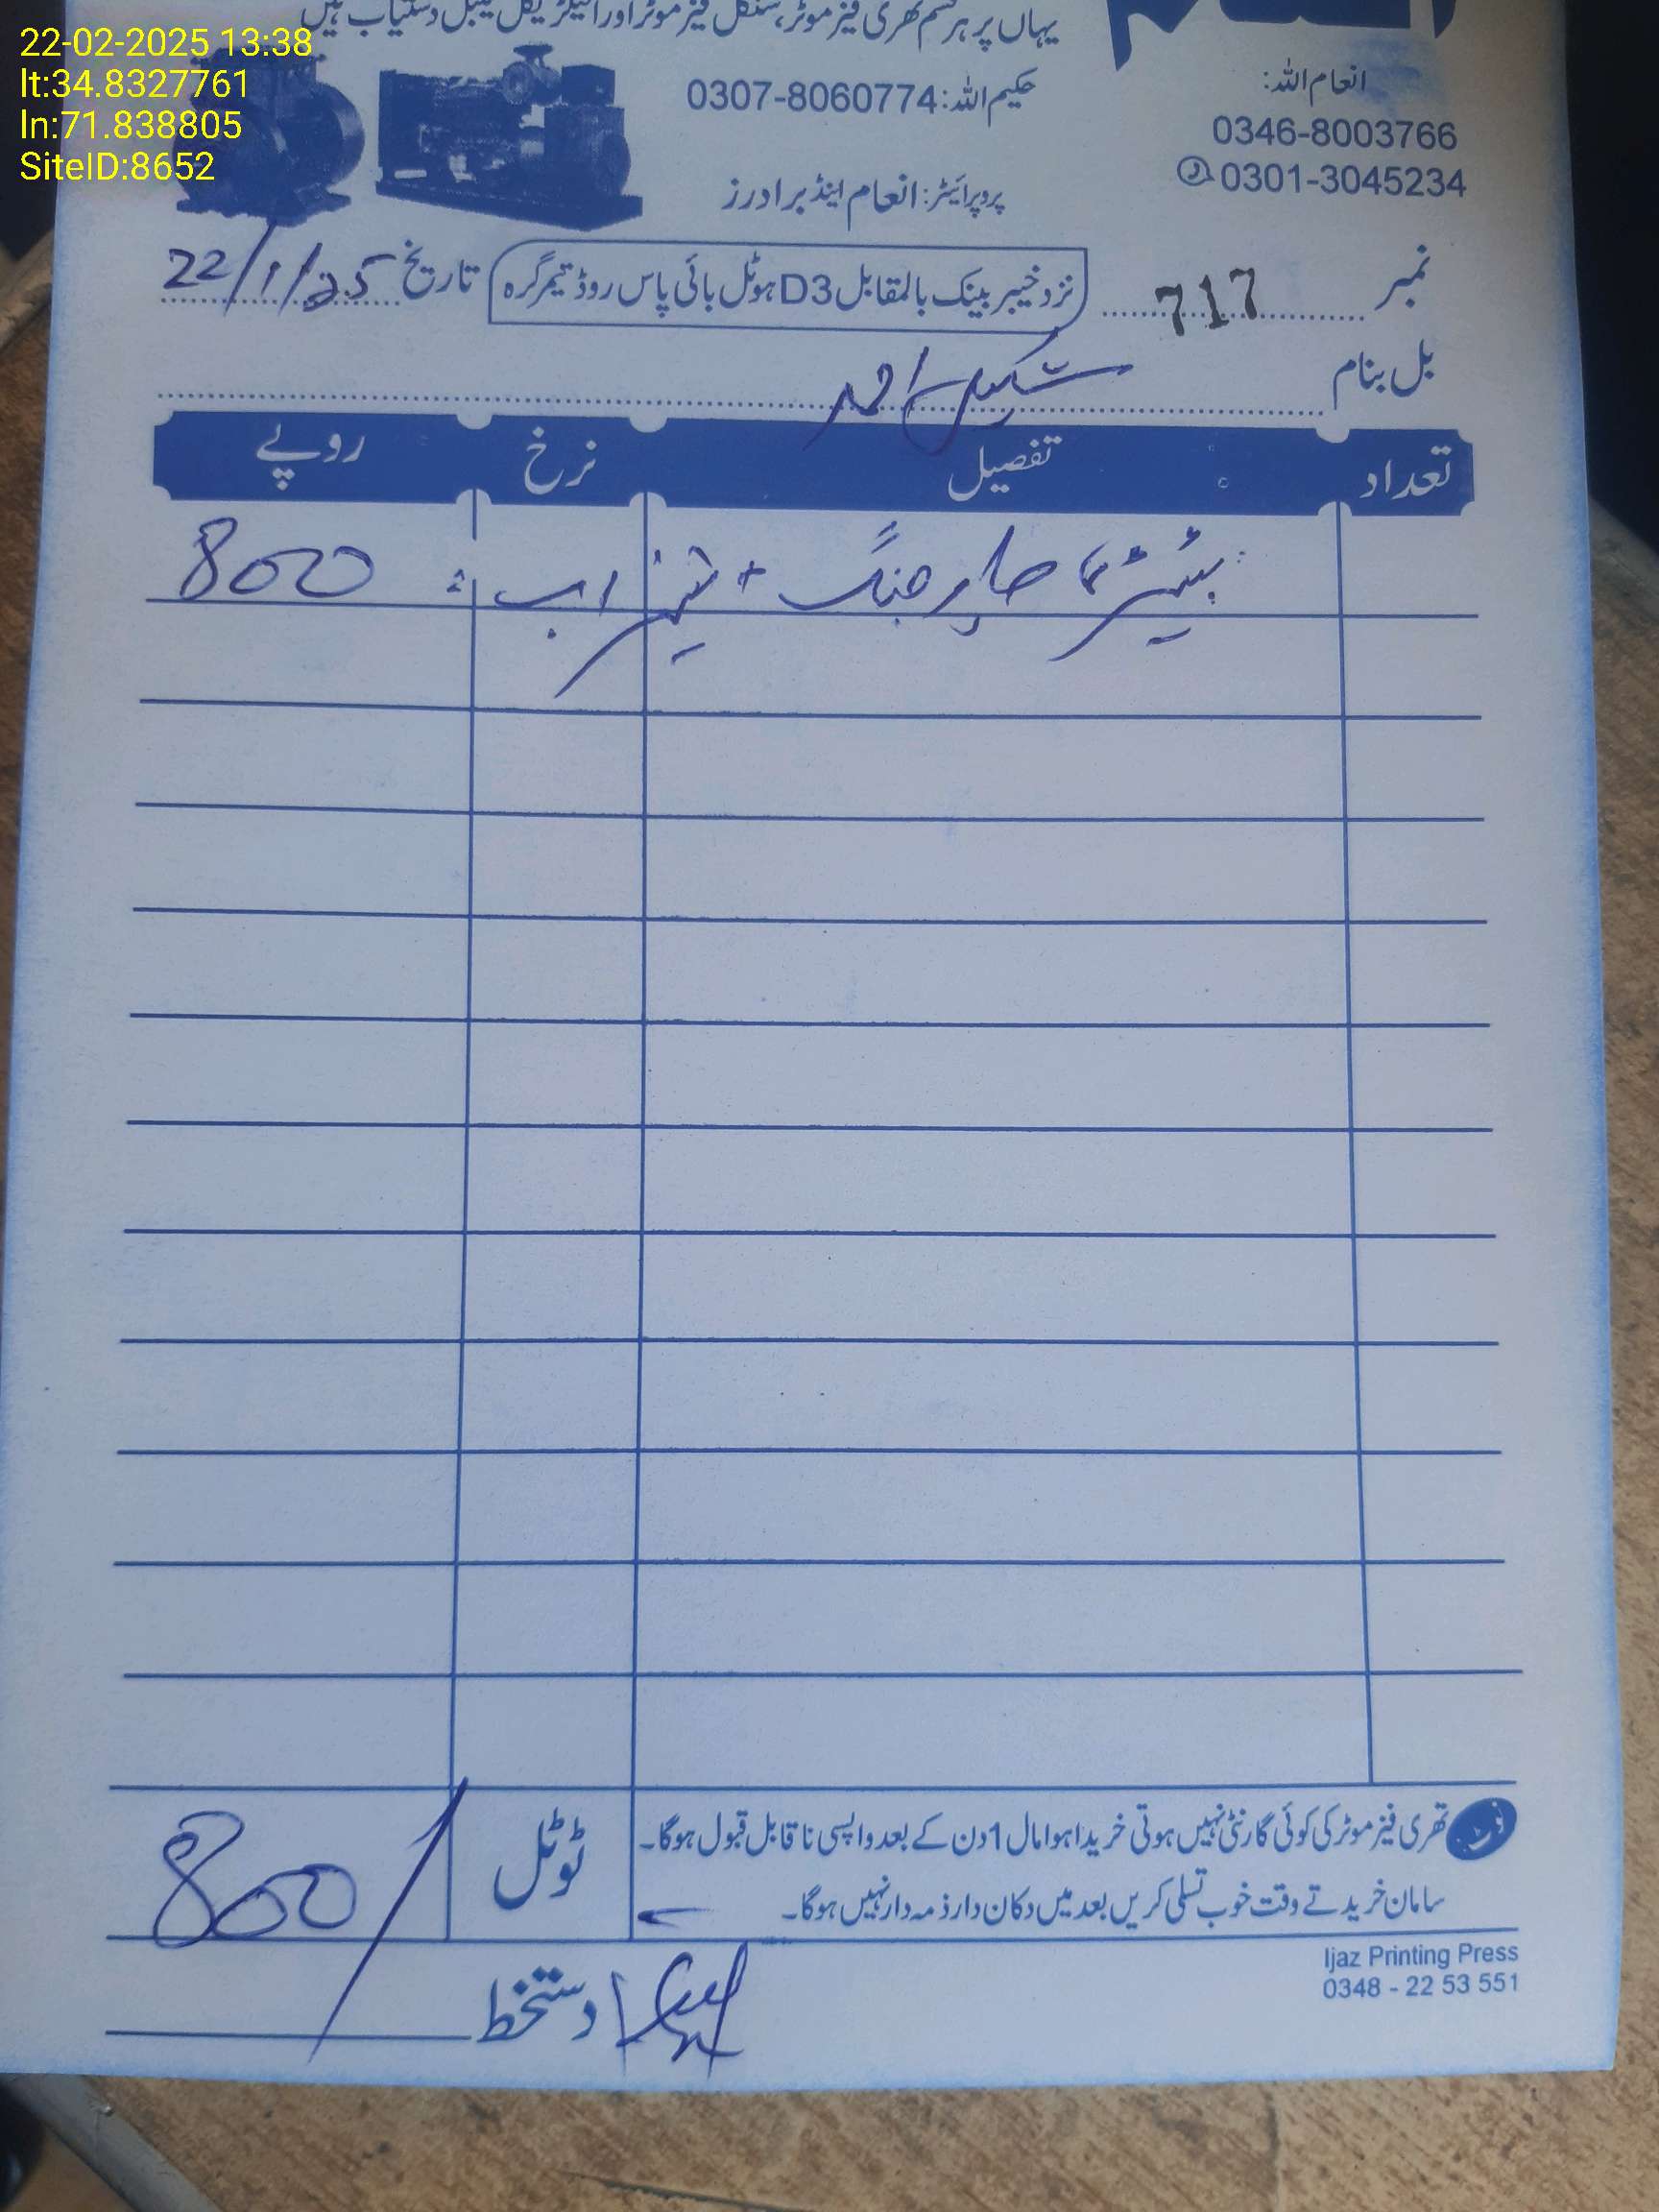 22-02-2025 13:38
lt:34.8327761
ln:71.838805
SiteID:8652
یہاں پر ہر قسم تھری فیز موٹر، سنگل فیز موٹر اور الیکٹریکل کیبل دستیاب ہیں
انعام اللہ:
0346-8003766
0301-3045234
حکیم اللہ: 0307-8060774
پروپرائیٹر: انعام اینڈ برادرز
نمبر 717
نزد خیبر بینک بالمقابل D3 ہوٹل بائی پاس روڈ تیمرگرہ
تاریخ 22/1/25
بل بنام شکیل احمد
تعداد تفصیل نرخ روپے
بیٹری چارجنگ + تیزاب 800
تھری فیز موٹر کی کوئی گارنٹی نہیں ہوتی خریدا ہوا مال 1 دن کے بعد واپسی ناقابل قبول ہوگا۔
سامان خریدتے وقت خوب تسلی کریں بعد میں دکان دار ذمہ دار نہیں ہوگا۔
ٹوٹل 800/
دستخط
Ijaz Printing Press
0348 - 22 53 551